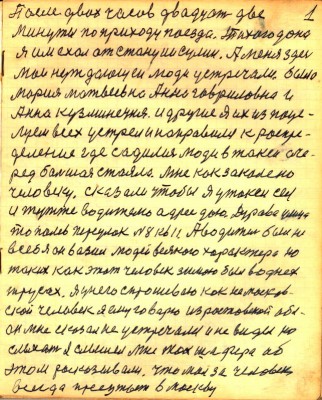 1
После двох часов двадцат две
минуты по приходу поезда. Тихого дона
Я им скал отстанции сулин. А меня здес
мои нуждающ еи люди устречали. было
мария матвеевна Анна гавриловна и
Анна кузминечна. и другие я их из поце-
луем всех устрел и направили к распре-
деление где садилис люди в такси оче-
ред большая стояла. мне как заказано
человеку. сказали чтобы я у такси сел
и тут же водителю адрес даю.
то полев переулок №8 кв 11 А водител был не
всебя он возил людей всякого характера но
таких как этот человек зимою был в одних
трусах. Я у него спрошеваю как не москов-
ской человек я ему говорю из ростовской обл-
он мне сказал не устречали и не виды но
слыхат я слышал мне тож шофера об
этом росказывали. что мол за человек
всегда приезжает в москву